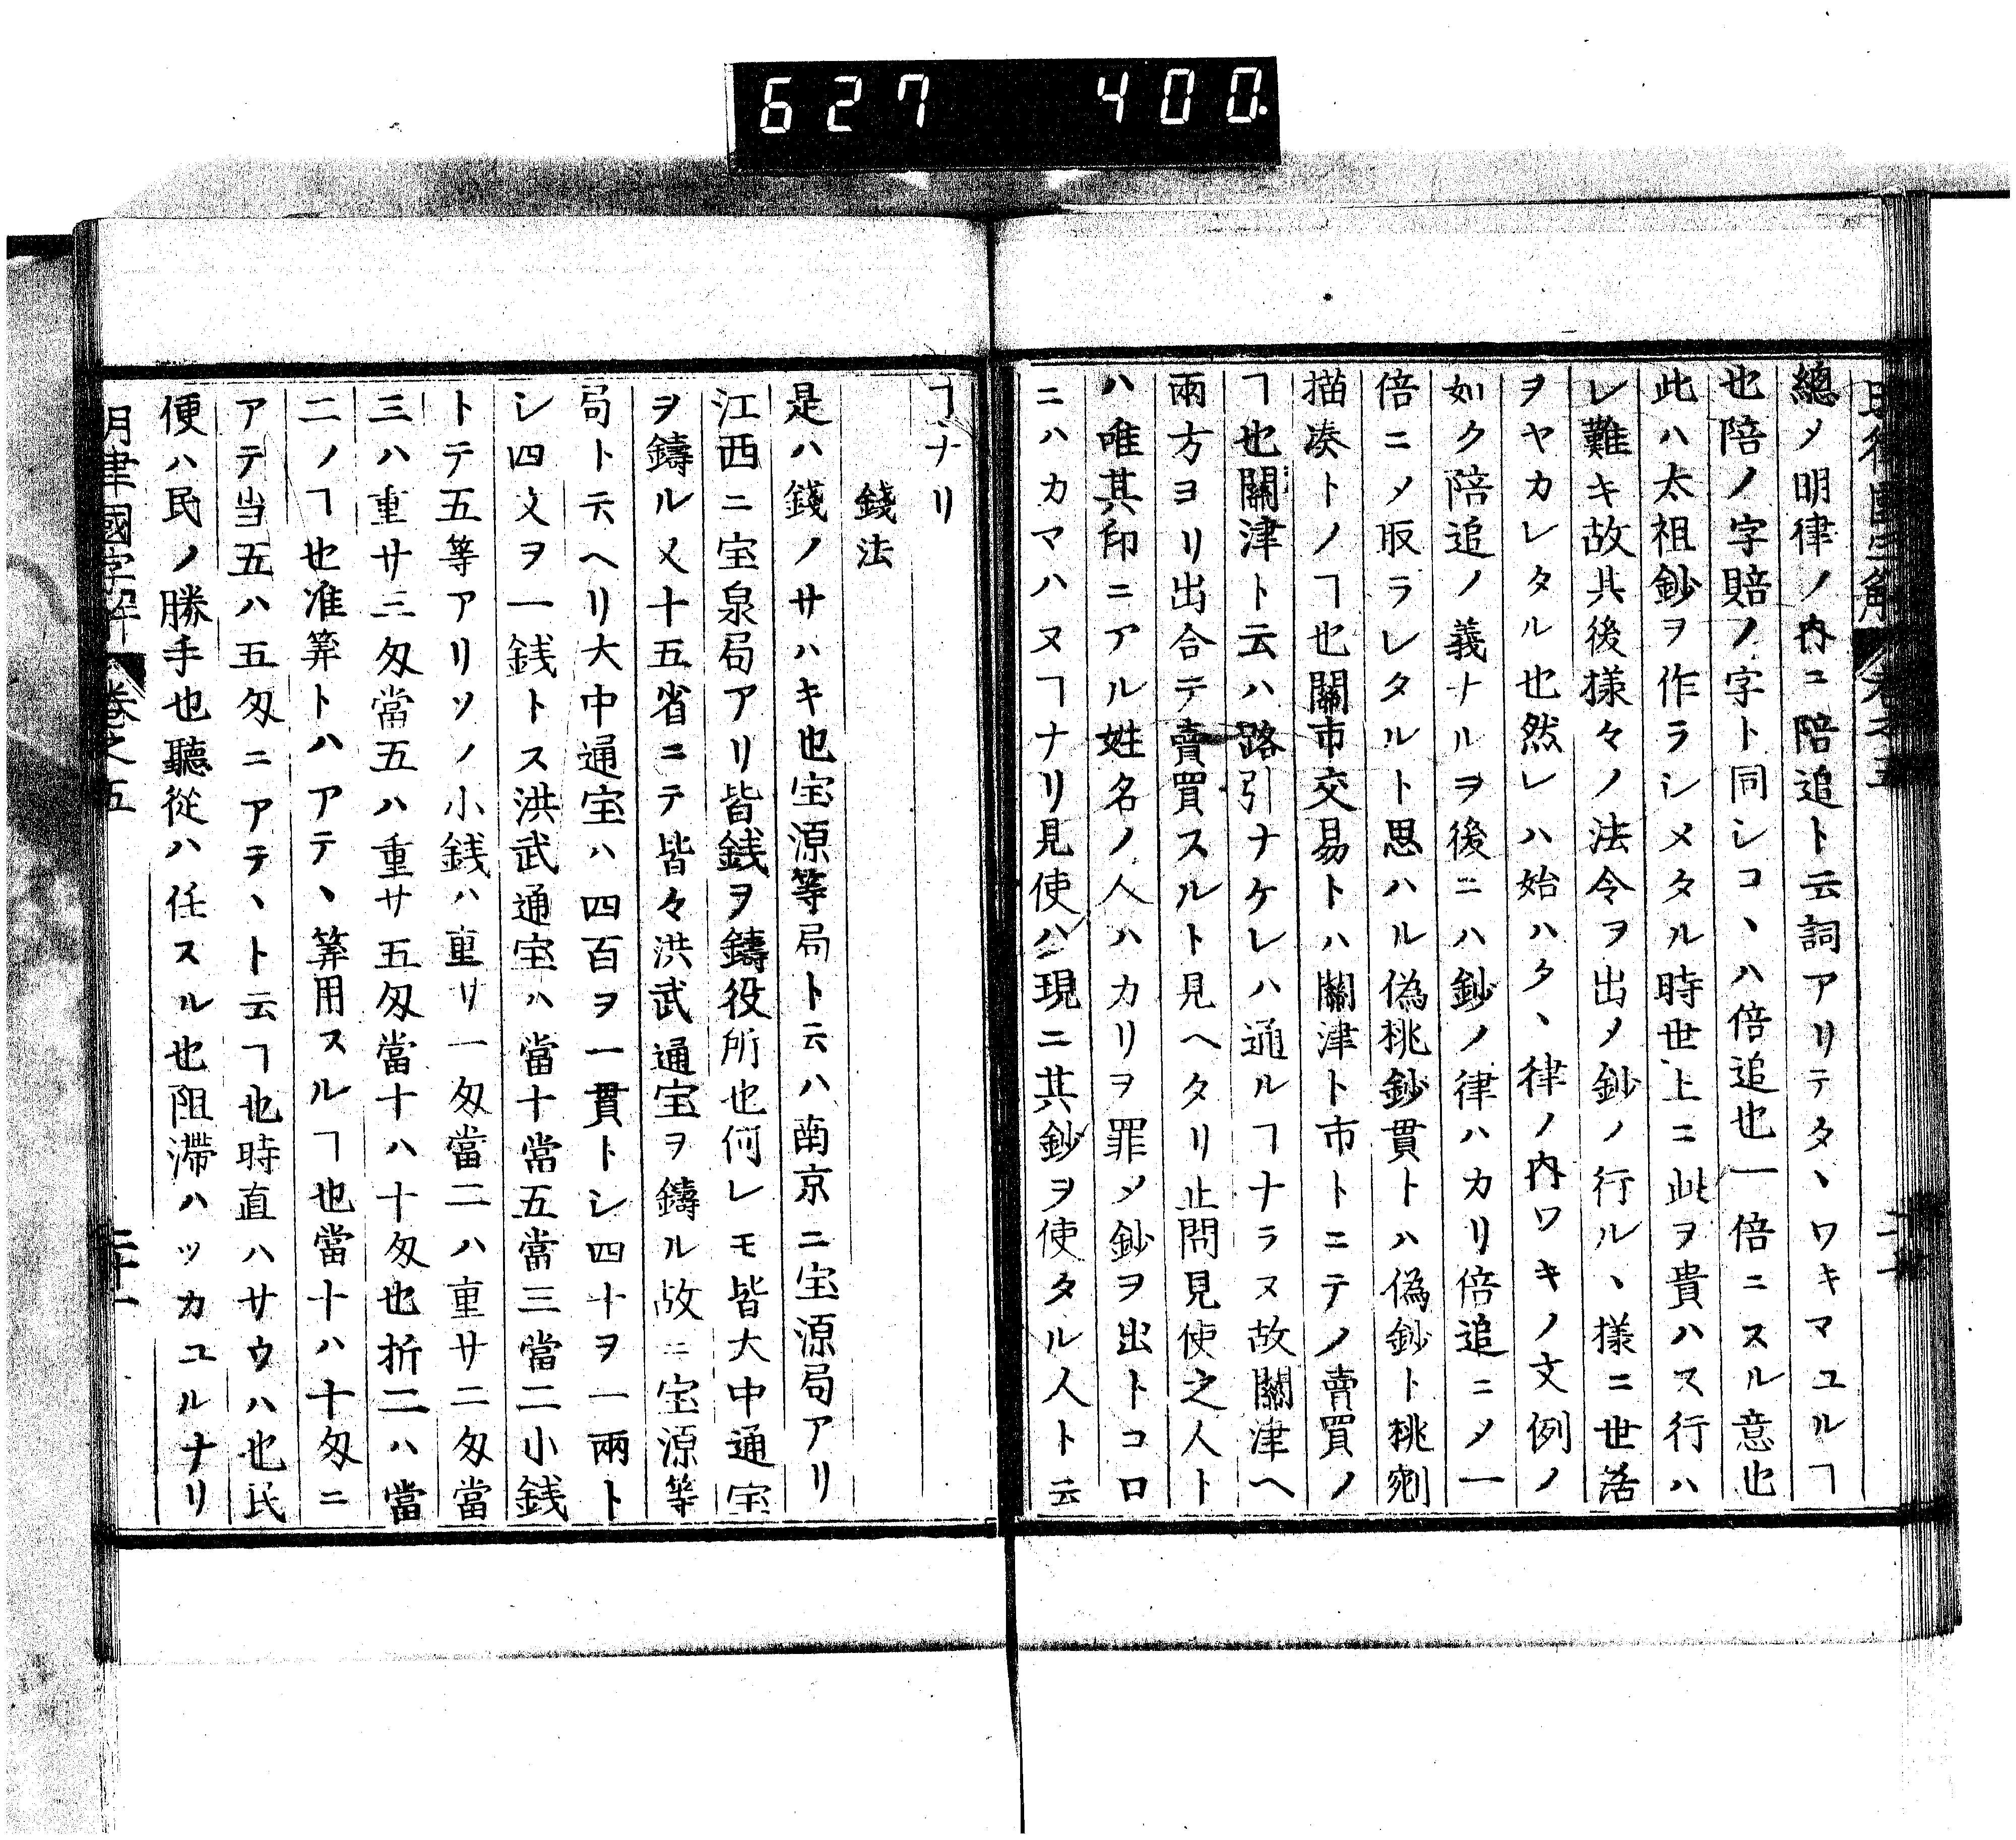 627 400
總〆明律ノ内ニ陪追ト云詞アリテタヽワキマユルヿ
也陪ノ字賠ノ字ト同シコヽハ倍追也一倍ニスル意也
此ハ太祖鈔ヲ作ラシメタル時世上ニ此ヲ貴ハス行ハ
レ難キ故其後様々ノ法令ヲ出〆鈔ノ行ルヽ様ニ世話
ヲヤカレタル也然レハ始ハクヽ律ノ内ワキノ文例ノ
如ク陪追ノ義ナルヲ後ニハ鈔ノ律ハカリ倍追ニ〆一
倍ニ〆取ラレタルト思ハル偽挑鈔貫トハ偽鈔ト挑剜
描湊トノヿ也關市交易トハ關津ト市トニテノ賣買ノ
ヿ也關津ト云ハ路引ナケレハ通ルヿナラヌ故關津ヘ
兩方ヨリ出合テ賣買スルト見ヘタリ止問見使之人ト
ハ唯其印ニアル姓名ノ人ハカリヲ罪〆鈔ヲ出トコロ
ニハカマハヌヿナリ見使ハ現ニ其鈔ヲ使タル人ト云
ヿナリ
錢法
是ハ錢ノサハキ也宝源等局ト云ハ南京ニ宝源局アリ
江西ニ宝泉局アリ皆銭ヲ鑄役所也何レモ皆大中通宝
ヲ鑄ル又十五省ニテ皆々洪武通宝ヲ鑄ル故ニ宝源等
局ト云ヘリ大中通宝ハ四百ヲ一貫トシ四十ヲ一兩ト
シ四文ヲ一銭トス洪武通宝ハ當十當五當三當二小銭
トテ五等アリソノ小銭ハ重リ一匁當二ハ重サ二匁當
三ハ重サ三匁當五ハ重サ五匁當十ハ十匁也折二ハ當
二ノヿ也准筭トハアテヽ筭用スルヿ也當十ハ十匁ニ
アテ当五ハ五匁ニアテヽト云ヿ也時直ハサウハ也民
便ハ民ノ勝手也聽從ハ任スル也阻滯ハツカユルナリ
明律國字解 卷之五